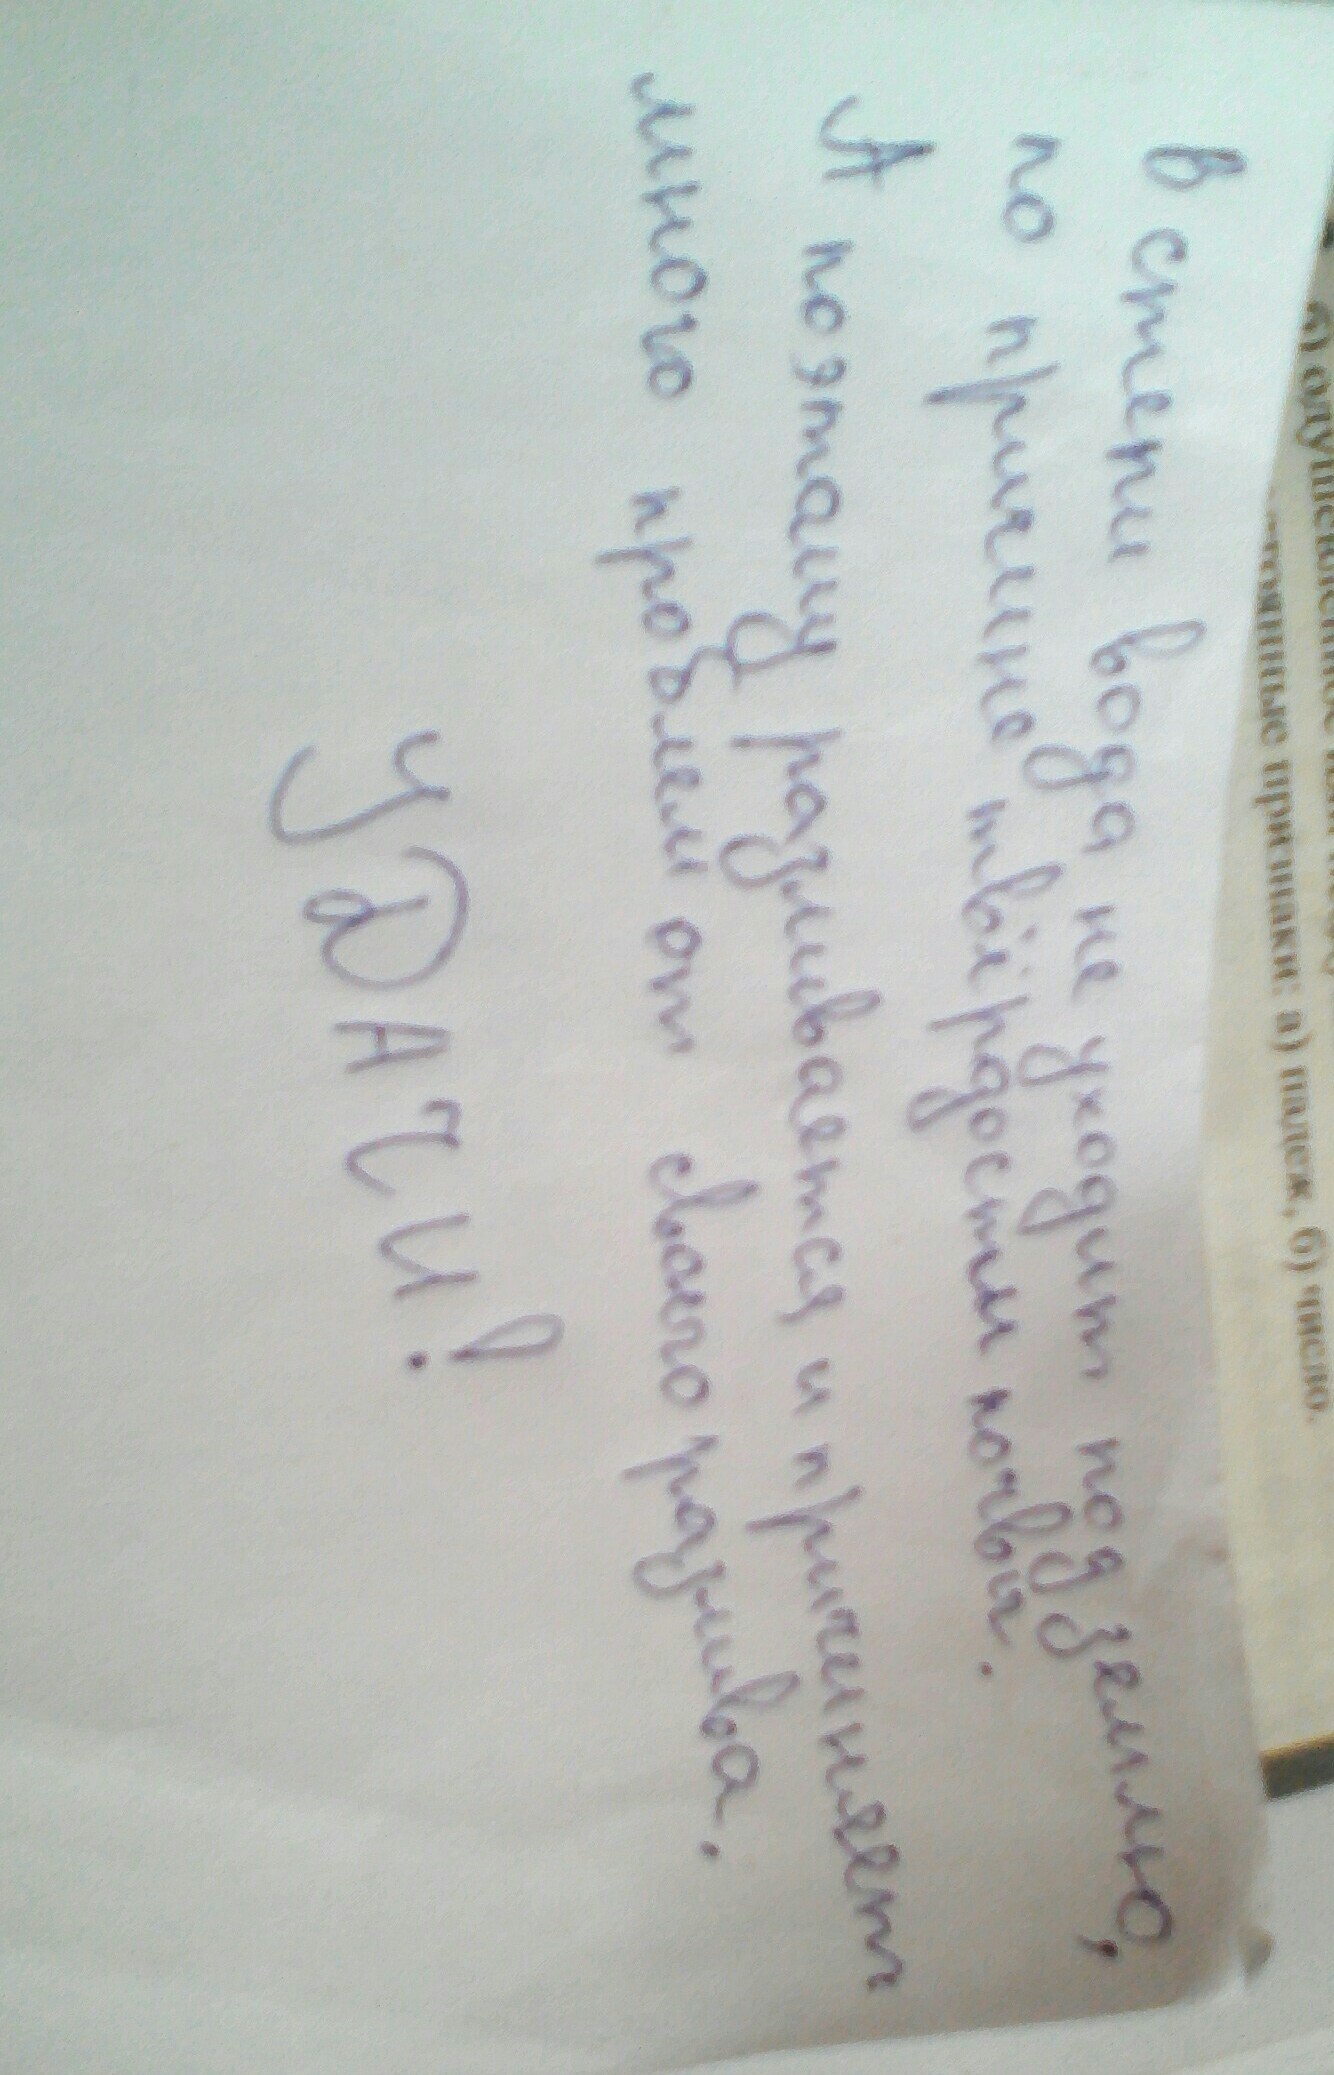 б) одушевленное или неод
стоянные признаки: а) падеж, б) число.
В степи вода не уходит под землю,
по причине твёрдости почвы.
А поэтаму разливается и причиняет
много проблем от своего разлива.
УДАЧИ!